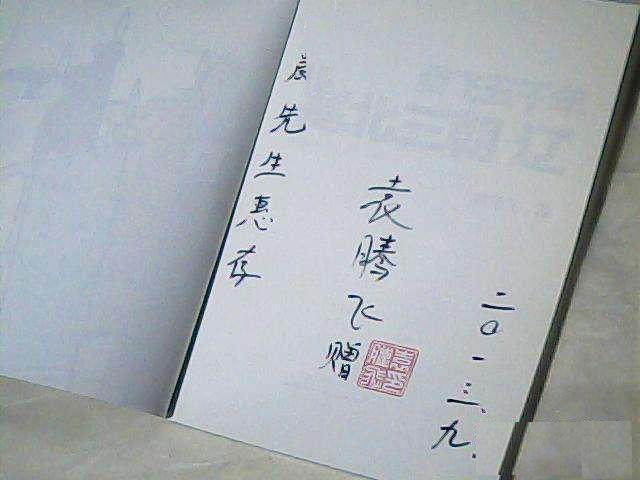 先生惠存
袁腾飞
赠
二〇一三.九.